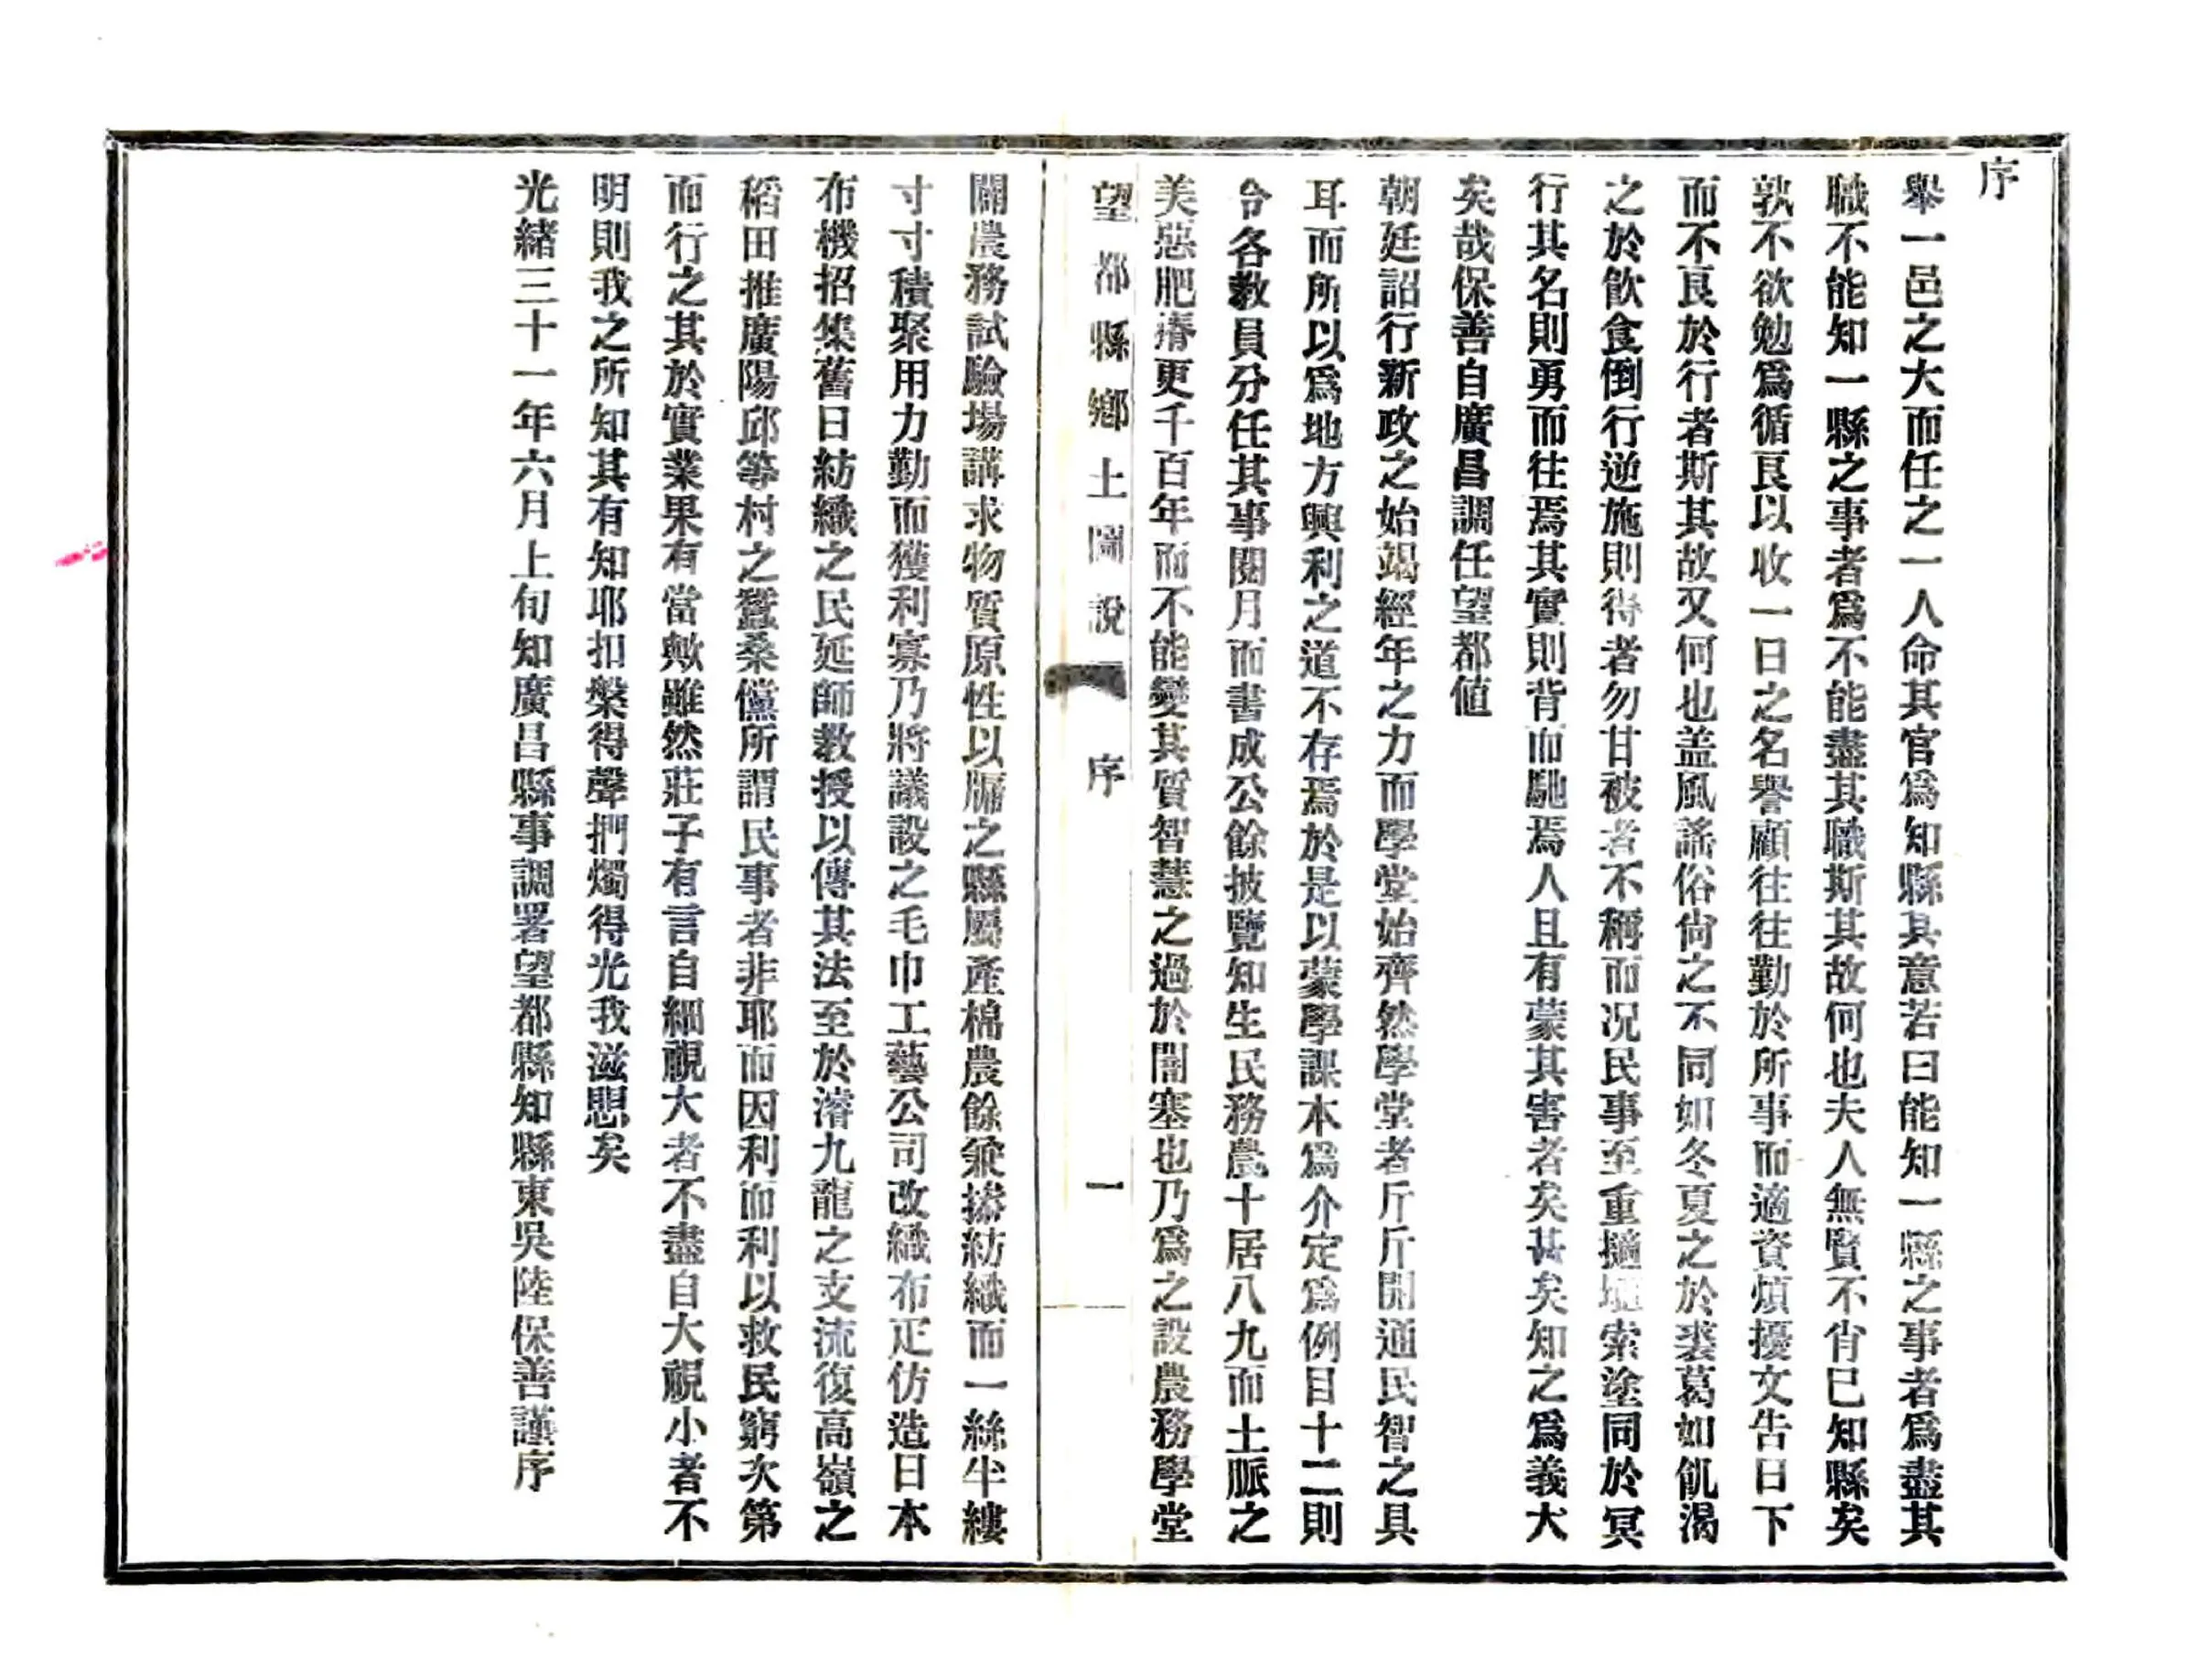 序
舉一邑之大而任之一人命其官爲知縣其意若曰能知一縣之事者爲盡其
職不能知一縣之事者爲不能盡其職斯其故何也夫人無賢不肖已知縣矣
孰不欲勉爲循良以收一日之名譽顧往往勤於所事而適資煩擾文告日下
而不良於行者斯其故又何也盖風謠俗尙之不同如冬夏之於裘葛如飢渴
之於飲食倒行逆施則得者勿甘被者不稱而况民事至重擿埴索塗同於冥
行其名則勇而往焉其實則背而馳焉人且有蒙其害者矣甚矣知之爲義大
矣哉保善自廣昌調任望都値
朝廷詔行新政之始竭經年之力而學堂始齊然學堂者斤斤開通民智之具
耳而所以爲地方興利之道不存焉於是以蒙學課本爲介定爲例目十二則
令各敎員分任其事閱月而書成公餘披覽知生民務農十居八九而土脈之
美惡肥瘠更千百年而不能變其質智慧之過於閉塞也乃爲之設農務學堂
望都縣鄉土圖說 序 一
闢農務試驗場講求物質原性以牖之縣屬產棉農餘兼搽紡織而一絲半縷
寸寸積聚用力勤而獲利寡乃將議設之毛巾工藝公司改織布疋仿造日本
布機招集舊日紡織之民延師敎授以傳其法至於濬九龍之支流復高嶺之
稻田推廣陽邱等村之蠶桑儻所謂民事者非耶而因利而利以救民窮次第
而行之其於實業果有當歟雖然莊子有言自細視大者不盡自大視小者不
明則我之所知其有知耶扣槃得聲捫燭得光我滋恧矣
光緒三十一年六月上旬知廣昌縣事調署望都縣知縣東吳陸保善謹序